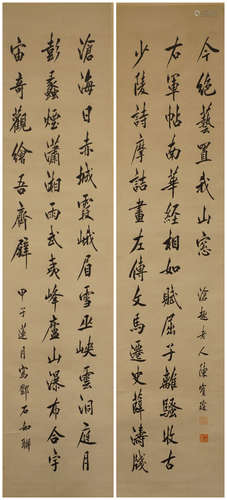 滄海日赤城霞峨眉雪巫峽雲洞庭月
彭蠡煙瀟湘雨武夷峰廬山瀑布合宇
宙奇觀繪吾齋壁
甲子蓮月寫鄧石如聯
少陵詩摩詰畫左傳文馬遷史薛濤牋
右軍帖南華經相如賦屈子離騷收古
今絕藝置我山窗
滄趣老人陳寶琛